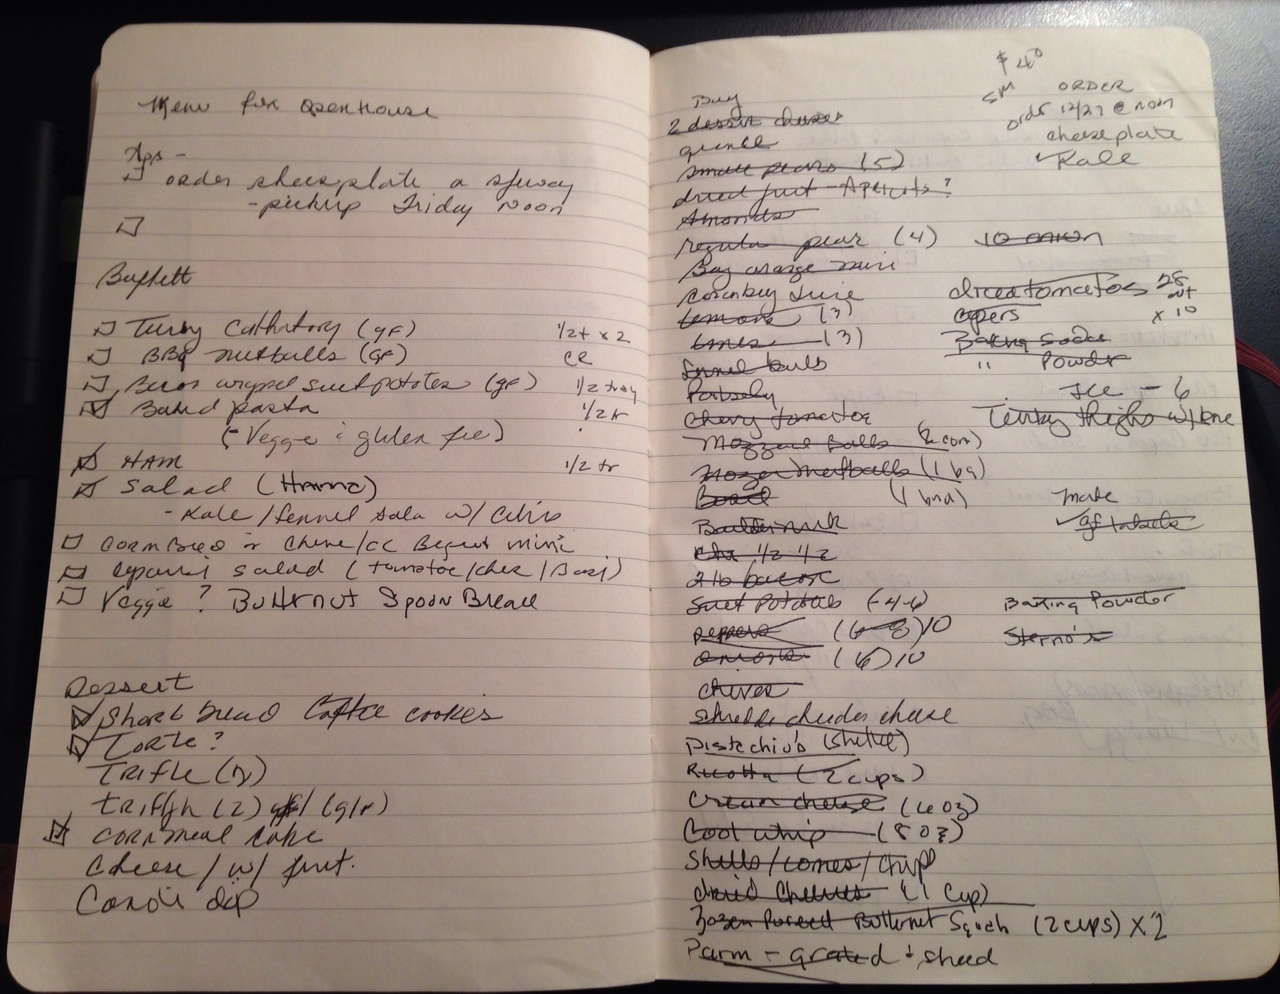 Menu for openhouse
Apps -
order cheeseplate @ safeway
- pickup Friday Noon
Buffett
Turkey (gf) 1/2 t x 2
BBQ meatballs (GF) CR
Bacon wrapped sweet potatoes (gf) 1/2 tray
Baked pasta 1/2 tr
(- Veggie & gluten free)
HAM 1/2 tr
Salad (Hanna)
- Kale / fennel sala w/
corn Bread or mini
salad (tomatoe / / )
Veggie? Butternut Spoon Bread
Dessert
Short bread Coffee cookies
Torte?
Trifle
(2) (g/f)
cornmeal cake
Cheese / w/ fruit.
dip
Buy
2 dessert cheese
quince
small pears (5)
dried fruit - Apricots?
Almonds
regular pear (4)
Bag orange mini
Juice
lemons (3)
limes (3)
fennel bulb
Parsely
Cherry tomatoe
Balls (2 con)
meatballs (1 bag)
Basil (1 bnd)
Buttermilk
1/2 1/2
Sweet Potatoes (4-6)
peppers (6-8) 10
onions (6) 10
chives
shredd chedder cheese
Pistachio's (shelled)
Ricotta (2 cups)
Cream cheese (4 oz)
Cool whip (8 oz)
Shells / cones / chips
dried Cherries (1 Cup)
frozen Pureed Butternut Sqush (2 cups) x 2
Parm - grated + shred
$ 40
SM ORDER
order 12/27 @ noon
cheeseplate
Kale
10 onion
diced tomatoes 28
x 10
capers
Baking Soda
" Powder
Ice - 6
Turkey thighs w/ bone
make
gf labels
Baking Powder
Sterno's